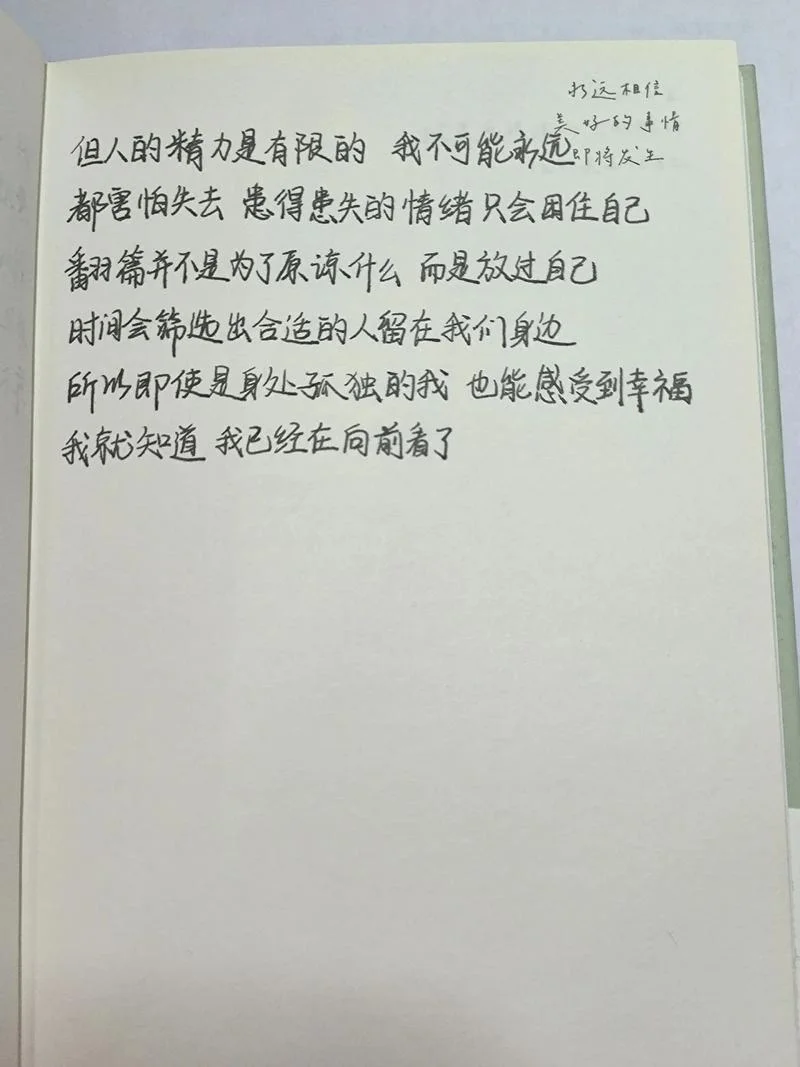 永远相信
美好的事情
即将发生
但人的精力是有限的 我不可能永远
都害怕失去 患得患失的情绪只会困住自己
翻篇并不是为了原谅什么 而是放过自己
时间会筛选出合适的人留在我们身边
所以即使是身处孤独的我 也能感受到幸福
我就知道 我已经在向前看了